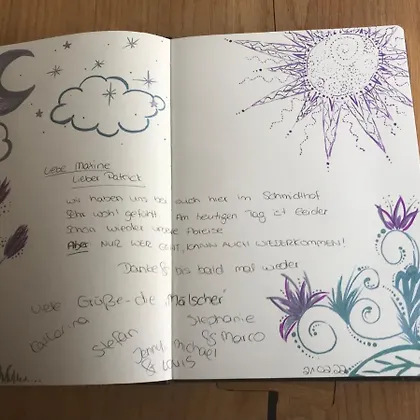 Liebe Maxine
Lieber Patrick
wir haben uns bei euch hier im Schmidlhof
Sehr wohl gefühlt. Am heutigen Tag ist leider
schon wieder unsere Abreise
Aber NUR WER GEHT, KANN AUCH WIEDERKOMMEN!
Danke & bis bald mal wieder
Viele Grüße - die "Mölscher"
Katharina Stephanie
Stefan & Marco
Jenny Michael
& Louis
21.02.22